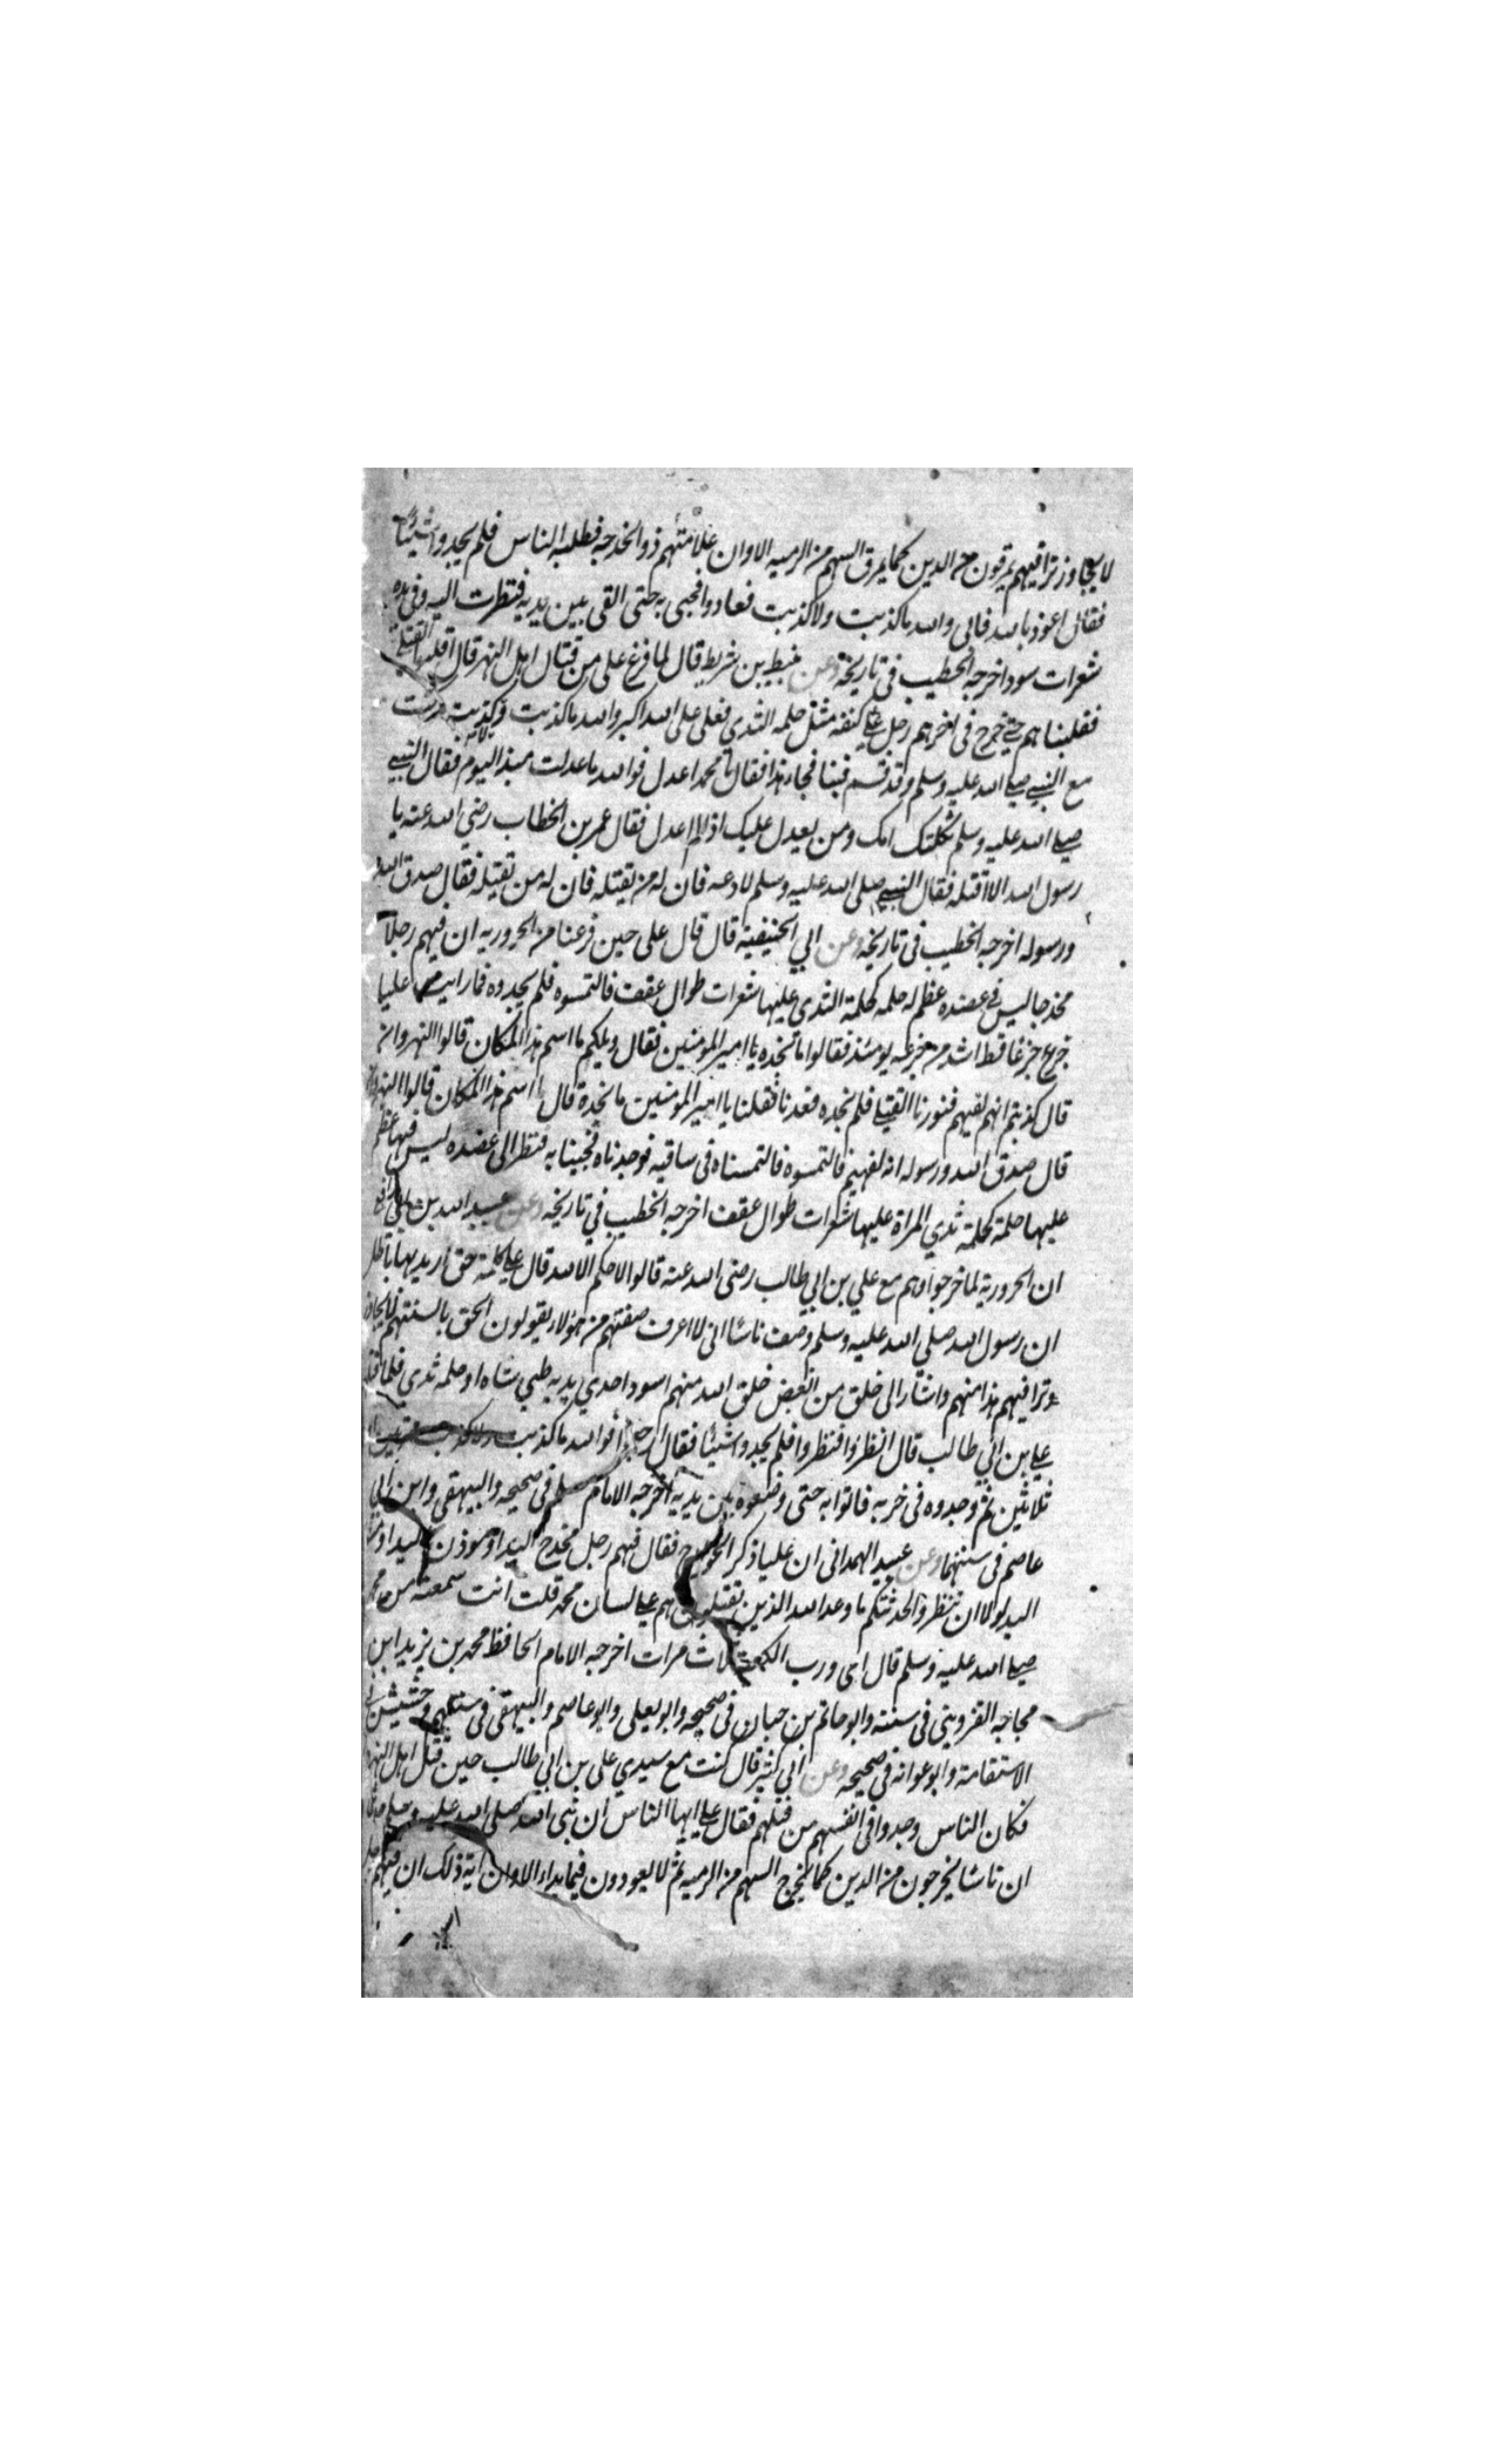 لا يجاوز تراقيهم يمرقون من الدين كما يمرق السهم من الرميه الا وان علامتهم ذو الخدجه فطلبه الناس فلم يجدوا شيئا
فقال اعوذ بالله فانى والله ما كذبت ولا كذبت فعادوا فجى به حتى القى بين يديه فنظرت اليه وفى يده
شعرات سود اخرجه الخطيب فى تاريخه وعن نبيط بن شريط قال لما فرغ على من قتال اهل النهر قال اقلبوا القتلى
فقلبناهم حتى خرج فى اخرهم رجل على كتفه مثل حلمه الثدى فعلى على الله اكبر والله ما كذبت ولا كذبت كنت
مع النبي صلى الله عليه وسلم وقد قسم فينا فجاء هذا فقال يا محمد اعدل فوالله ما عدلت منذ اليوم فقال النبي
صلى الله عليه وسلم ثكلتك امك ومن يعدل عليك اذا لم اعدل فقال عمر بن الخطاب رضي الله عنه يا
رسول الله الا اقتله فقال النبي صلى الله عليه وسلم لا دعه فان له من يقتله فان له من تقيله فقال صدق الله
ورسوله اخرجه الخطيب فى تاريخه وعن ابي الحنيفية قال قال على حين فرغنا من الحروريه ان فيهم رجلا
مخدجا ليس في عضده عظم له حلمه كحلمة الثدى عليها شعرات طوال عقف فالتمسوه فلم يجدوه فما رايت عليا
جزع جزعا قط اشد من جزعه يومئذ فقالوا ما نجده يا امير المومنين فقال ويلكم ما اسم هذا المكان قالوا النهروان
قال كذبتم انهم لفيهم فثورنا القتلى فلم نجده فعدنا فقلنا يا امير المومنين ما نجدة قال ما اسم هذا المكان قالوا النهروان
قال صدق الله ورسوله انه لفيهم فالتمسوه فالتمسناه فى ساقيه فوجدناه فجينا به فنظر الى عضده ليس فيها عظم
عليها حلمة كحلمة ثدي المراة عليها شعرات طوال عقف اخرجه الخطيب في تاريخه وعن عبيد الله بن ابي رافع
ان الحرورية لما خرجوا وهم مع علي بن ابي طالب رضى الله عنه قالوا لا حكم الا لله قال على كلمة حق اريد بها باطل
ان رسول الله صلي الله عليه وسلم وصف ناسا انى لا اعرف صفتهم من هولاء يقولون الحق بالسنتهم لا يجاوز
وتراقيهم هذا منهم واشار الى خلق من ابغض خلق الله منهم اسود احدي يديه طبي شاه او حلمه ثدي فلما
علي بن ابي طالب قال انظروا فنظروا فلم يجدوا شيئا فقال ارجعوا فوالله ما كذبت ولا كذبت مرتين او
ثلاثين ثم وجدوه فى خربه فاتوا به حتى وضعوه بين يديه اخرجه الامام مسلم فى صحيحه والبيهقى وابن ابي
عاصم فى سننهما وعن عبيد الهمدانى ان عليا ذكر الخوارج فقال فيهم رجل مخدج اليد او موذن اليد او
اليد لولا ان تنظروا لحدثتكم ما وعد الله الذين يقتلونهم على لسان محمد قلت انت سمعته من محمد
صلى الله عليه وسلم قال اى ورب الكعبة ثلاث مرات اخرجه الامام الحافظ محمد بن يزيد ابن
ماجه القزوينى فى سننه وابو حاتم بن حبان فى صحيحه وابو يعلى وابو عاصم والبيهقى فى سننهم وخشيش
الاستقامة وابو عوانه فى صحيحه وعن ابي كثير قال كنت مع سيدي على بن ابي طالب حين قتل اهل النهر
فكان الناس وجدوا فى انفسهم من قتلهم فقال على ايها الناس ان نبى الله صلى الله عليه وسلم
ان ناسا يخرجون من الدين كما يخرج السهم من الرميه ثم لا يعودون فيه ابدا الا وان اية ذلك ان فيهم